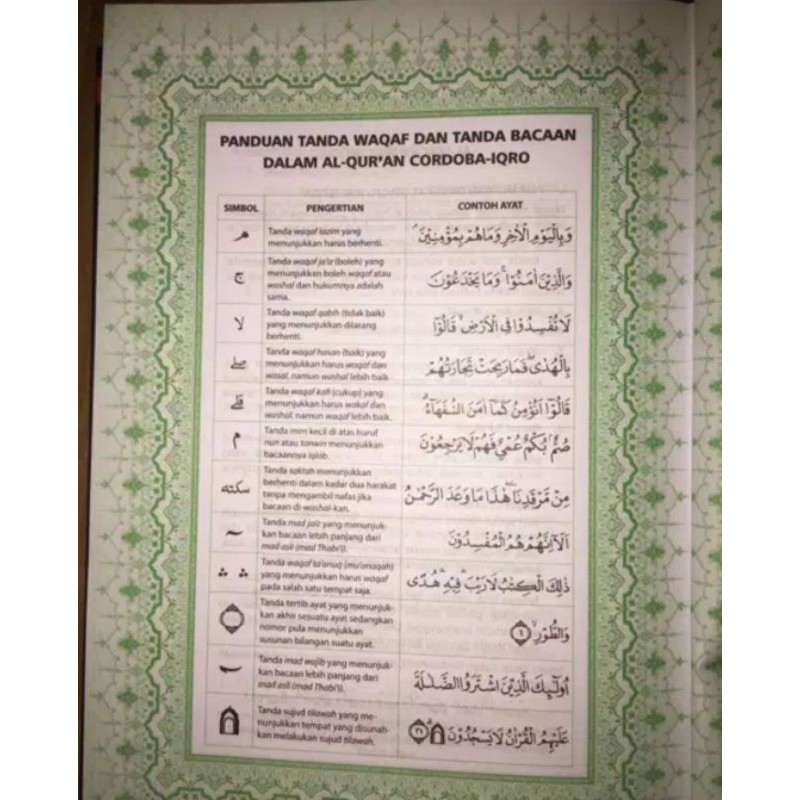 PANDUAN TANDA WAQAF DAN TANDA BACAAN
DALAM AL-QUR'AN CORDOBA-IQRO
SIMBOL PENGERTIAN CONTOH AYAT
مـ
Tanda waqaf lazim yang
menunjukkan harus berhenti.
وَبِالْيَوْمِ الْاٰخِرِ وَمَا هُمْ بِمُؤْمِنِيْنَۘ
ج
Tanda waqaf ja'iz (boleh) yang
menunjukkan boleh waqaf atau
washal dan hukumnya adalah
sama.
وَالَّذِيْنَ اٰمَنُوْا ۚ وَمَا يَخْدَعُوْنَ
لا
Tanda waqaf qabih (tidak baik)
yang menunjukkan dilarang
berhenti.
لَا تُفْسِدُوْا فِى الْاَرْضِۙ قَالُوْٓا
صلے
Tanda waqaf hasan (baik) yang
menunjukkan harus waqaf dan
wasal, namun washal lebih baik.
بِالْهُدٰىۖ فَمَا رَبِحَتْ تِّجَارَتُهُمْ
قلے
Tanda waqaf kafi (cukup) yang
menunjukkan harus wakaf dan
washal, namun waqaf lebih baik.
قَالُوْٓا اَنُؤْمِنُ كَمَآ اٰمَنَ السُّفَهَاۤءُۗ
م
Tanda mim kecil di atas huruf
nun atau tanwin menunjukkan
bacaannya iqlab.
صُمٌّۢ بُكْمٌ عُمْيٌ فَهُمْ لَا يَرْجِعُوْنَ
سكته
Tanda saktah menunjukkan
berhenti dalam kadar dua harakat
tanpa mengambil nafas jika
bacaan di-washal-kan.
مِنْ مَّرْقَدِنَا ۜهٰذَا مَا وَعَدَ الرَّحْمٰنُ
Tanda mad jaiz yang menunjuk-
kan bacaan lebih panjang dari
mad asli (mad Thabi'i).
اَلَآ اِنَّهُمْ هُمُ الْمُفْسِدُوْنَ
Tanda waqaf ta'anuq (mu'anaqah)
yang menunjukkan harus waqaf
pada salah satu tempat saja.
ذٰلِكَ الْكِتٰبُ لَا رَيْبَ ۛ فِيْهِ ۛ هُدًى
Tanda tertib ayat yang menunjuk-
kan akhir sesuatu ayat sedangkan
nomor pula menunjukkan
susunan bilangan suatu ayat.
وَالطُّوْرِۙ ١
Tanda mad wajib yang menunjuk-
kan bacaan lebih panjang dari
mad asli (mad Thabi'i).
اُولٰۤىِٕكَ الَّذِيْنَ اشْتَرَوُا الضَّلٰلَةَ
Tanda sujud tilawah yang me-
nunjukkan tempat yang disunah-
kan melakukan sujud tilawah.
عَلَيْهِمُ الْقُرْاٰنُ لَا يَسْجُدُوْنَ ۩ ٢١